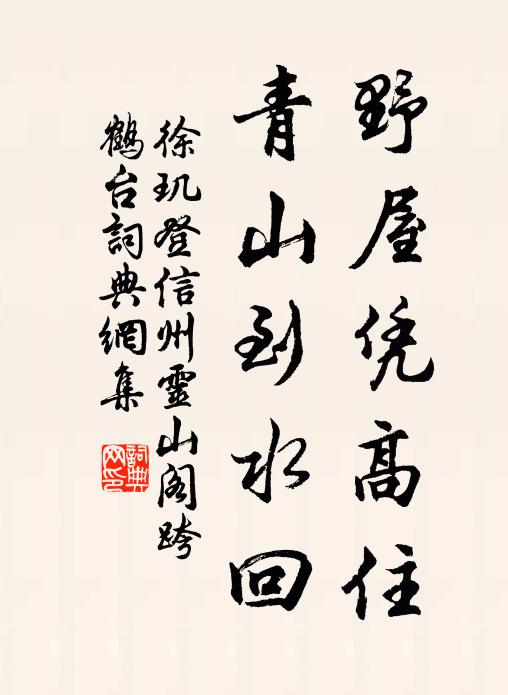 野屋凭高住
青山到水回
徐玑登信州靈山阁跨
鶴台詞典網集
詞典
网印